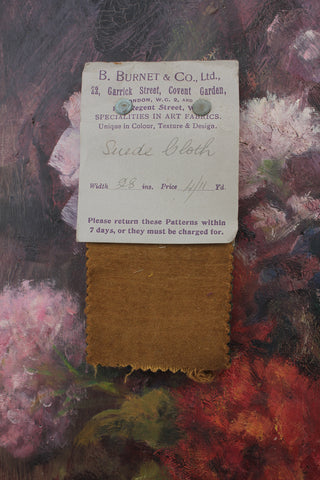 B. BURNET & CO., LTD.,
22, Garrick Street, Covent Garden,
LONDON, W.C. 2, AND
Regent Street, W.
SPECIALITIES IN ART FABRICS.
Unique in Colour, Texture & Design.
Suede Cloth
Width 28 ins. Price 4/11 Yd.
Please return these Patterns within
7 days, or they must be charged for.